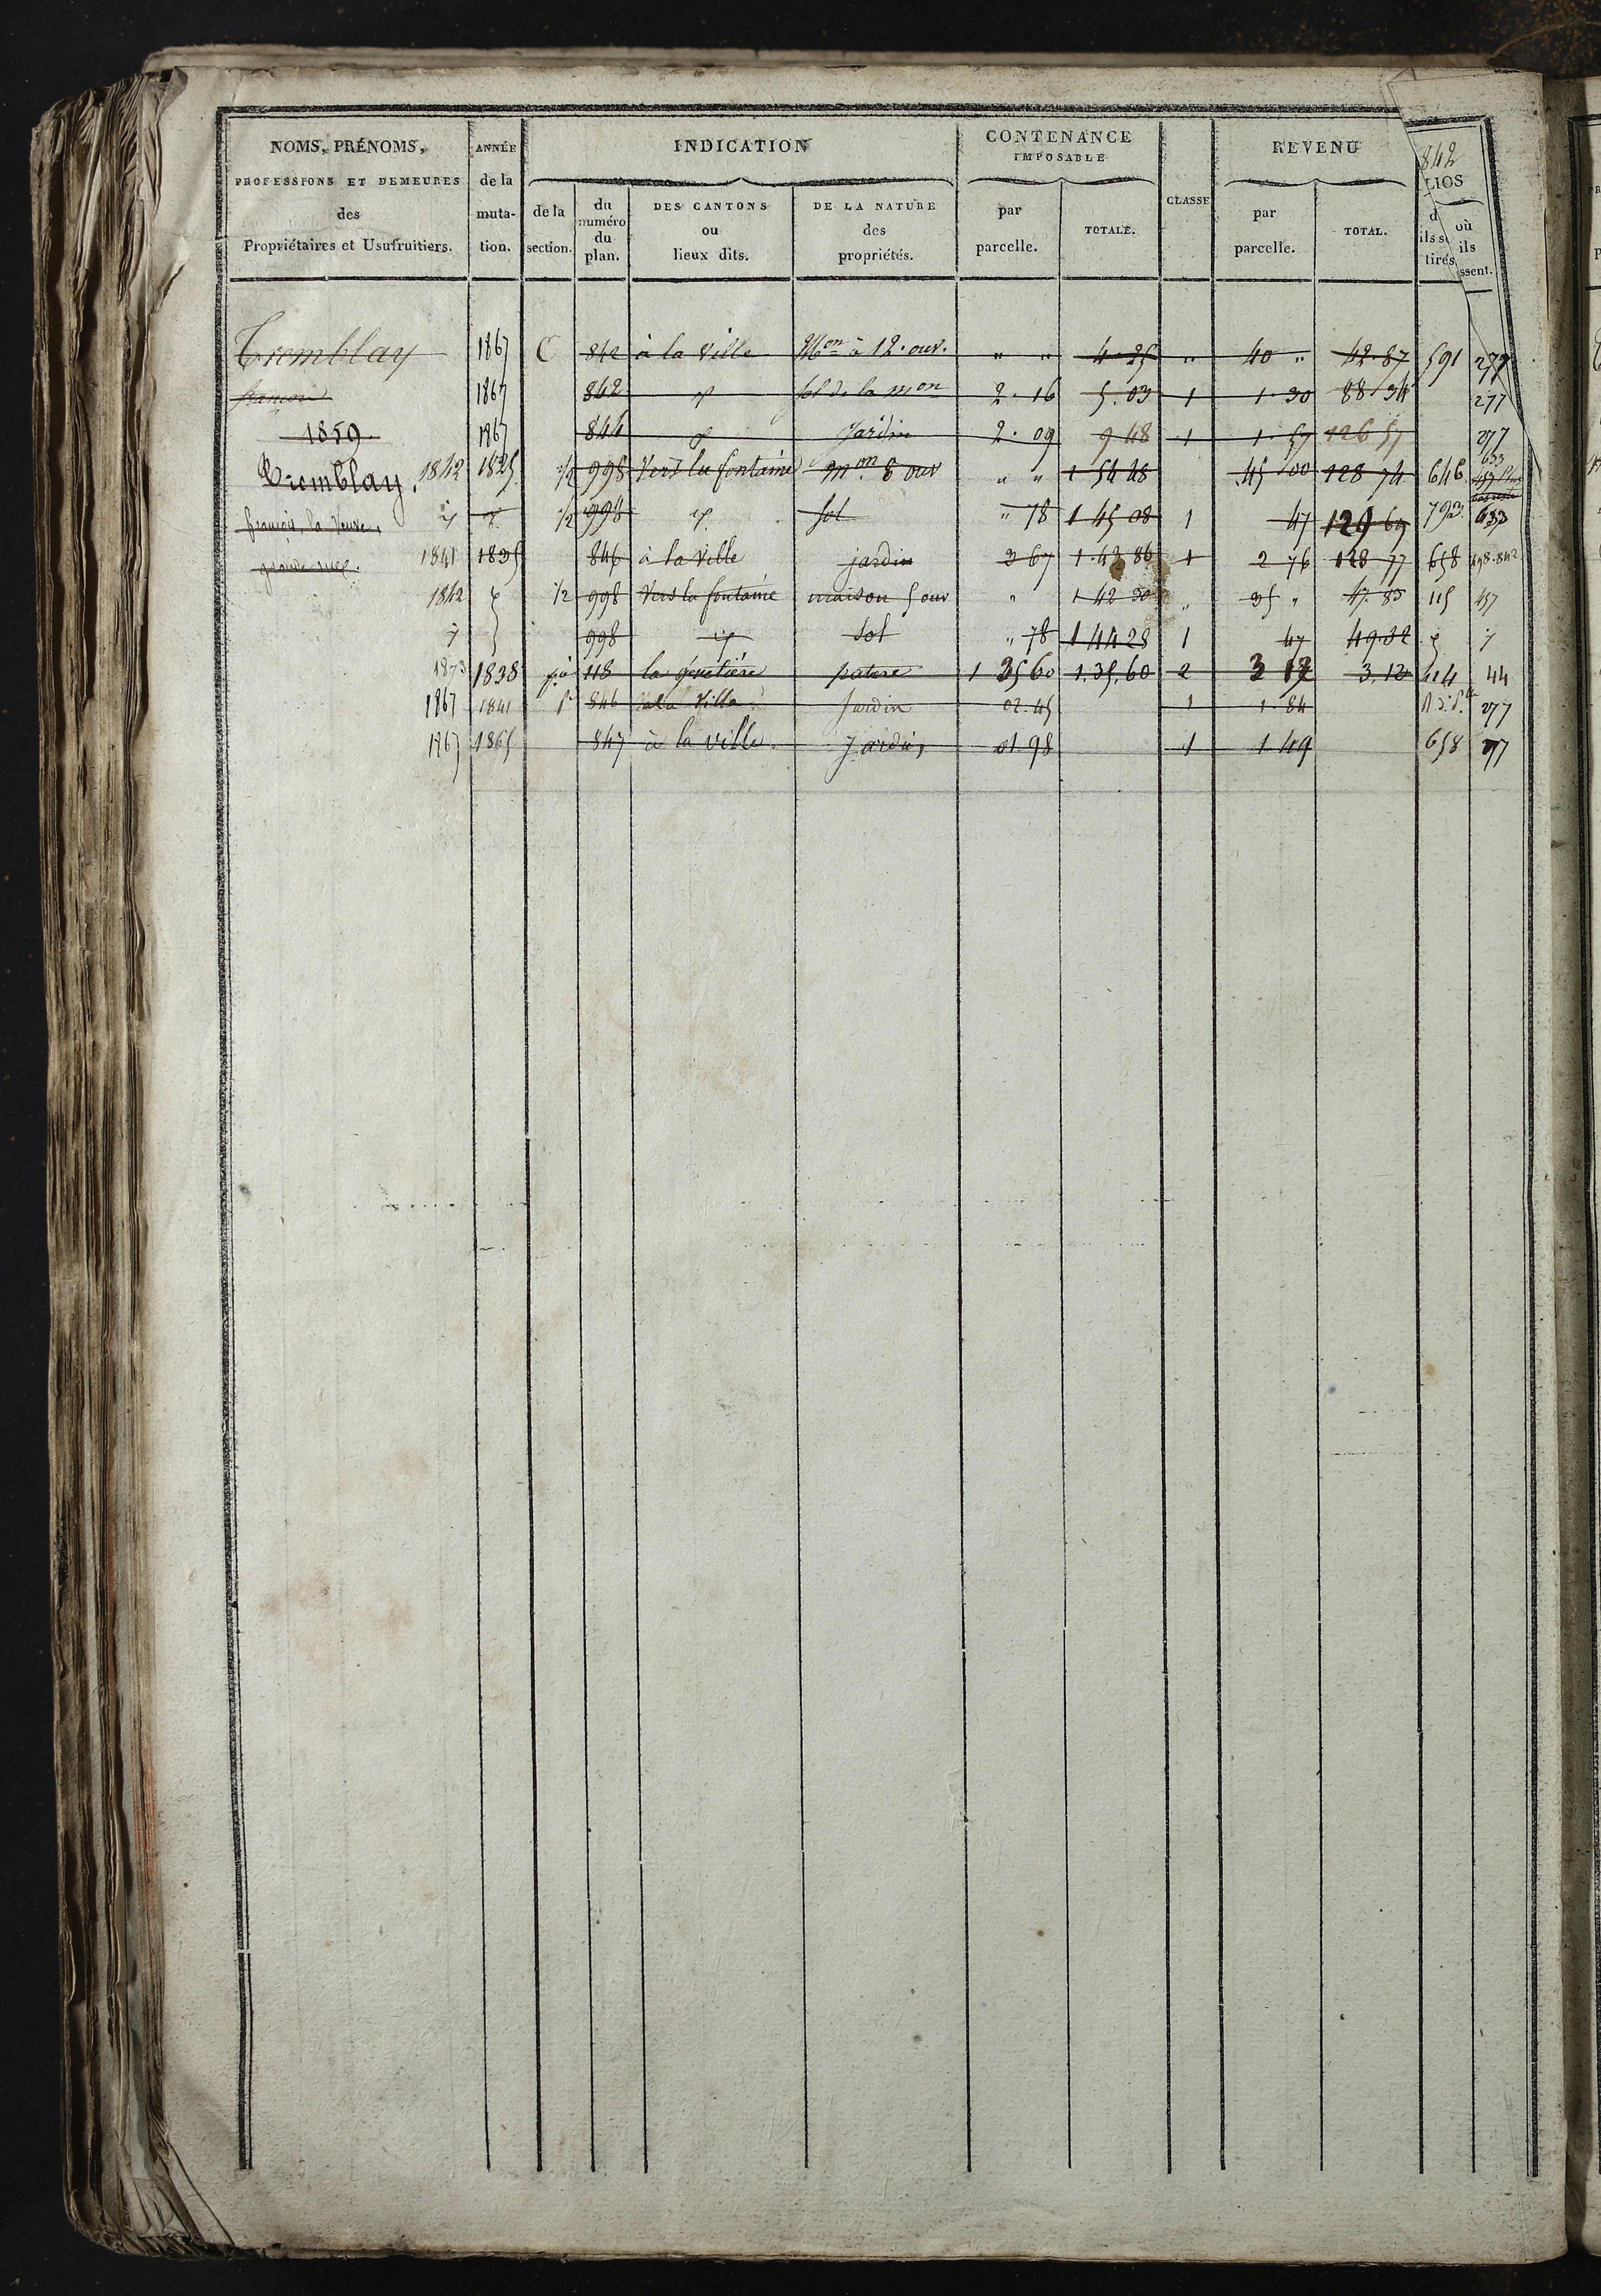 842
NOMS, PRÉNOMS, ANNÉE INDICATION CONTENANCE IMPOSABLE CLASSE REVENU LIOS
PROFESSIONS ET DEMEURES de la
des muta- de la du numéro du plan. DES CANTONS ou lieux dits. DE LA NATURE des propriétés. par parcelle. TOTALE. par parcelle. TOTAL. d ils se tirés où ils ssent.
Propriétaires et Usufruitiers. tion. section.
Tremblay 1867 C 842 à la Ville Mon à 12. ouv. " " 4.25 " 40 " 42.87 591 277
françois 1867 842 sol de la mon 2.16 5.03 1 1.30 88.34 277
1859 1867 844 Jardin 2.09 9 48 1 1.57 126 57 277
Tremblay. 1842 1825 1/2 998 Vers la fontaine mon. 8 ouv " " 1 54 48 45 00 128 74 646 633
françois, la Veuve, 1/2 998 sol " 78 1 45 08 1 47 129 69 793 633
grande rue. 1841 1835 846 à la Ville jardin 3 67 1.42 86 1 2 76 128 77 658 842
1842 1/2 998 Vers la fontaine maison 5 ouv " 1 42 50 " 35 " 47.83 115 457
998 Sol " 78 1 44 28 1 47 49.32
1873 1838 118 pature 1 35 60 1.35,60 2 3 12 3,12 414 44
1867 1841 846 à la Ville Jardin 02.45 1 1 84 277
1867 1865 847 à la ville. Jardin 01 98 1 1 49 658 277